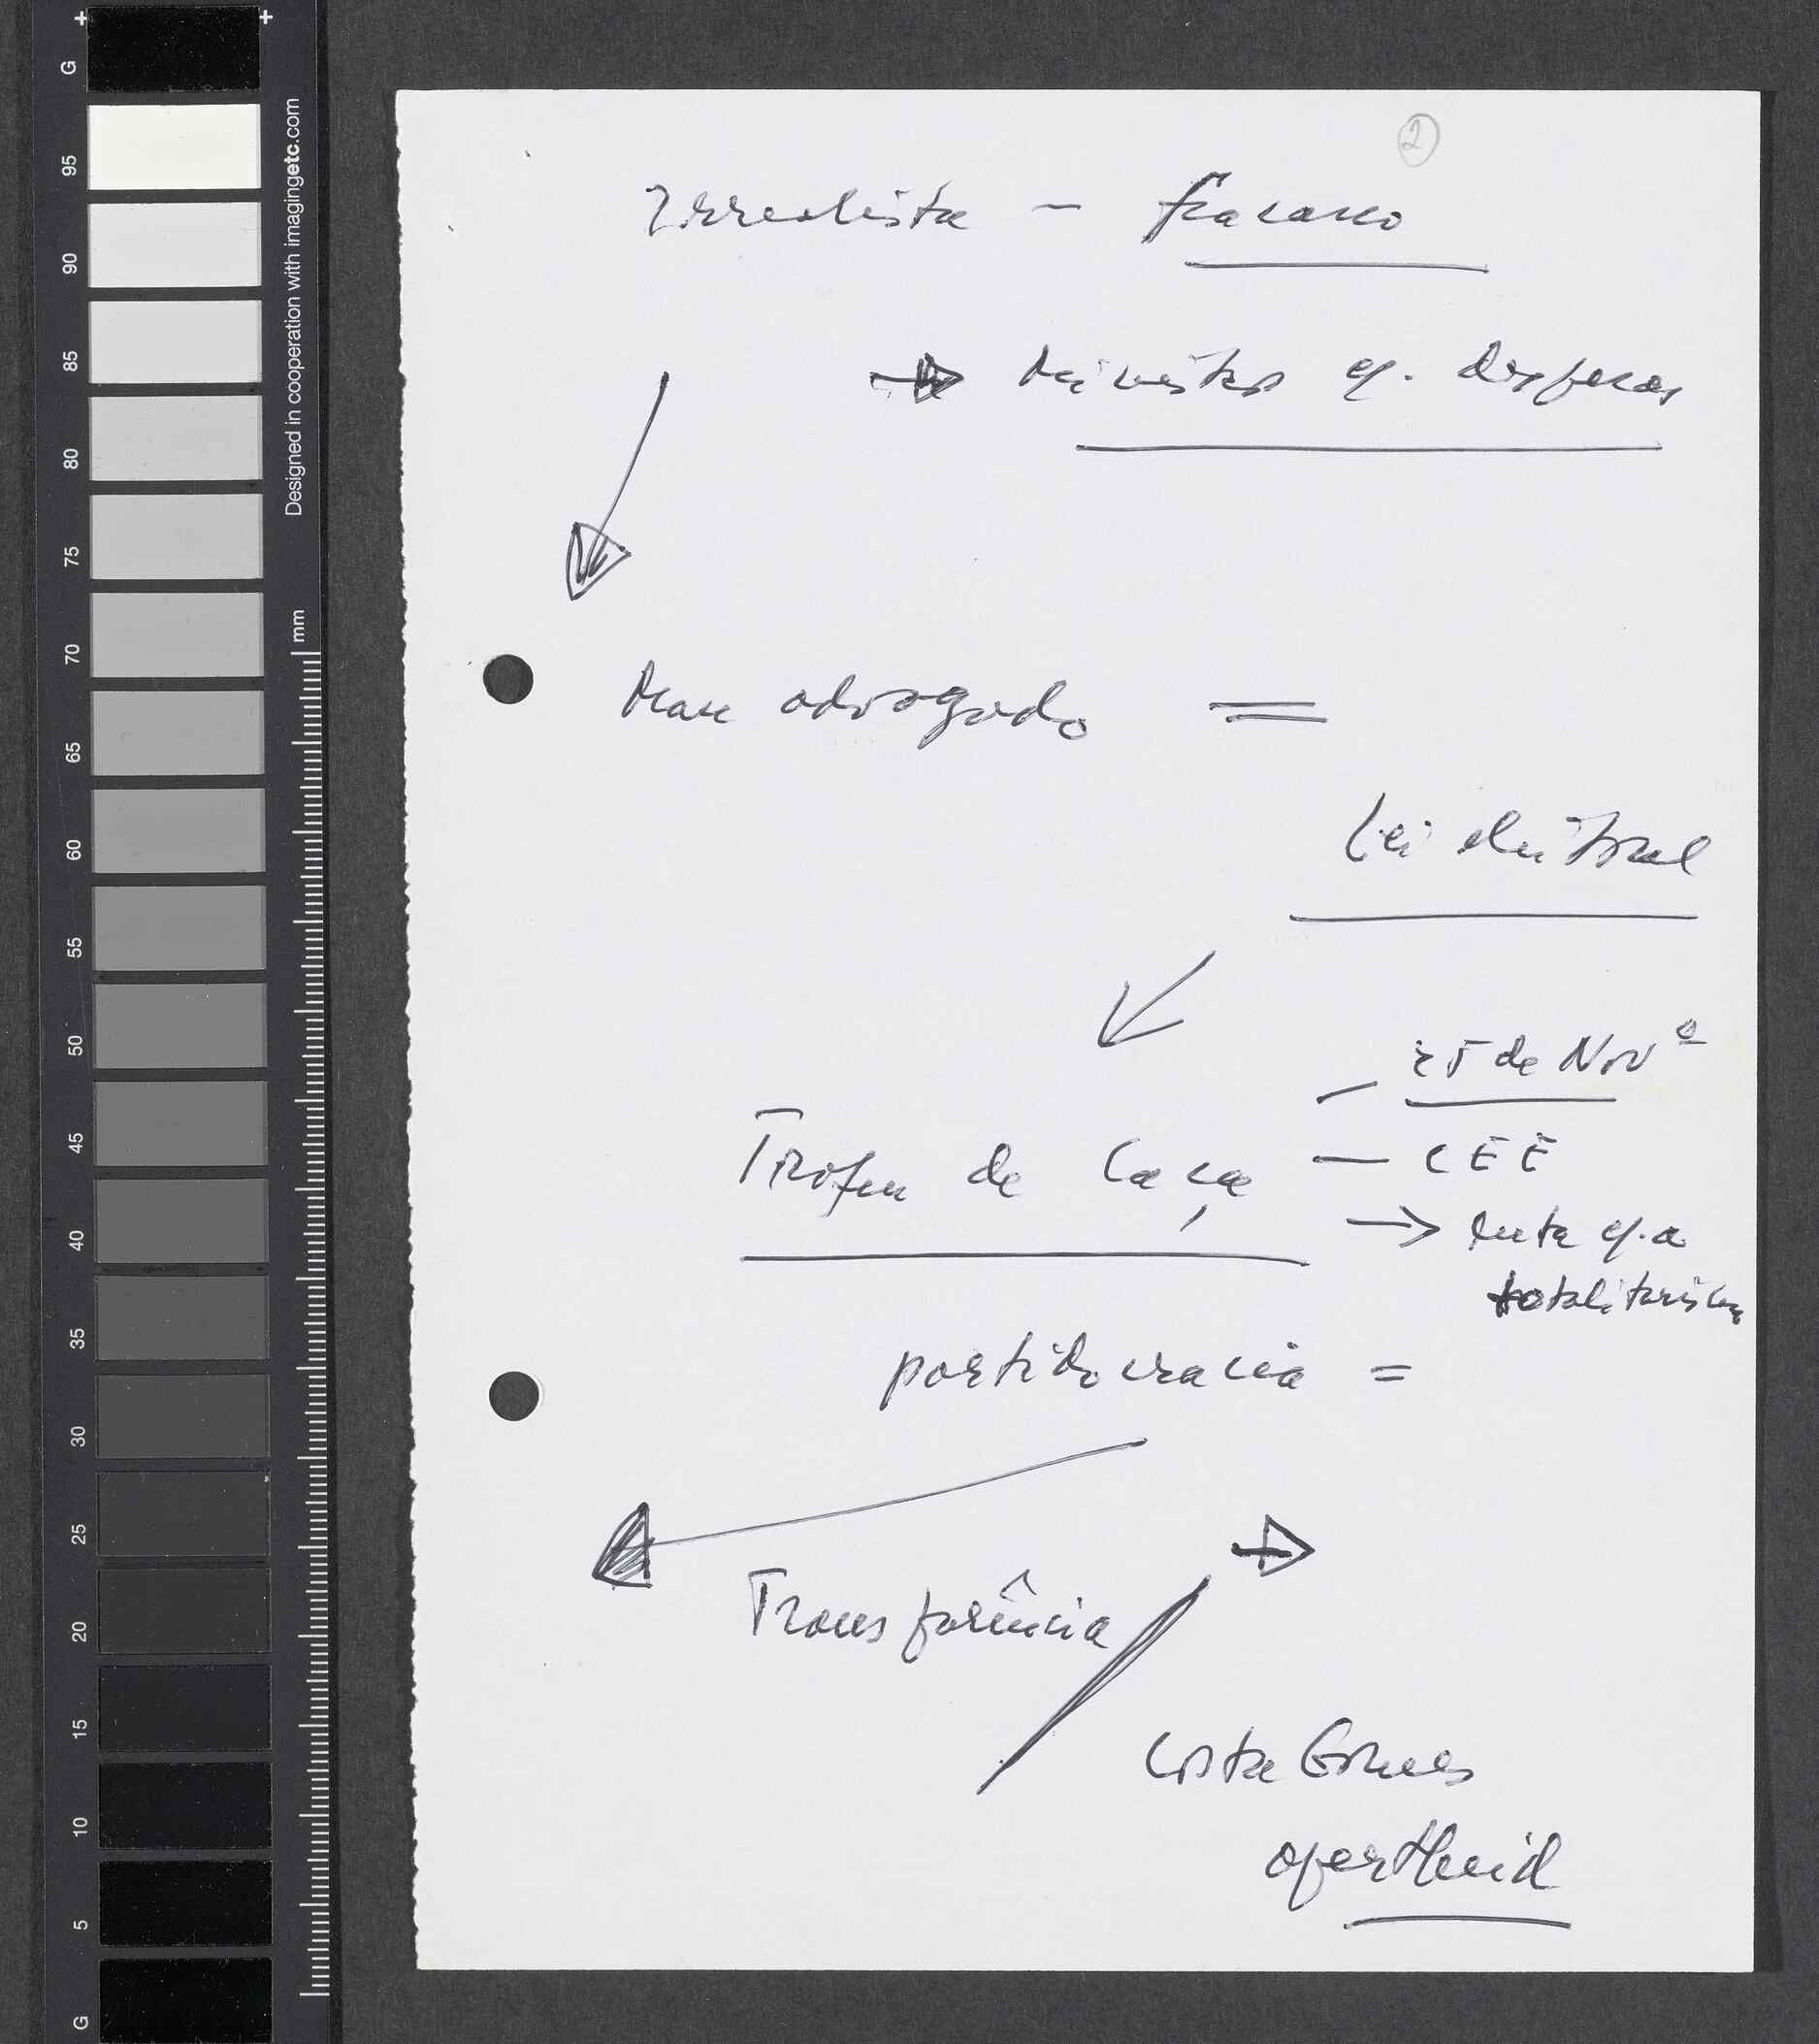 G
95
90
85
80
75
70
65
60
55
50
45
40
35
30
25
20
15
10
5
G
Designed in cooperation with imagingetc.com
mm
2
Irrealista - fracasso
Ministros q. despesas
Mau advogado =
Lei eleitoral
25 de Novº
Trofeu de Caça — CEE
luta q. a
totalitarismo
partidocracia =
Transparência
Costa Gomes
apartheid